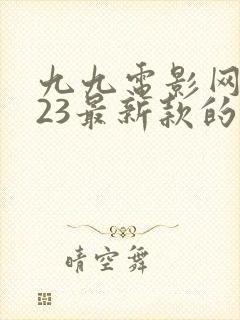 九九電影网
23最新款的
晴空舞